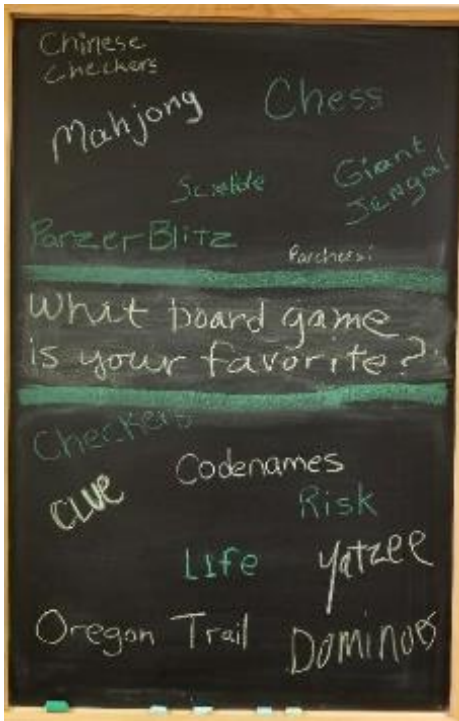 Chinese
Checkers
Chess
Mahjong
Giant
Jenga!
Scrabble
PanzerBlitz
Parchersi
What board game
is your favorite?
Checkers
Codenames
CLUE
Risk
Life
Yatzee
Oregon Trail
Dominoes